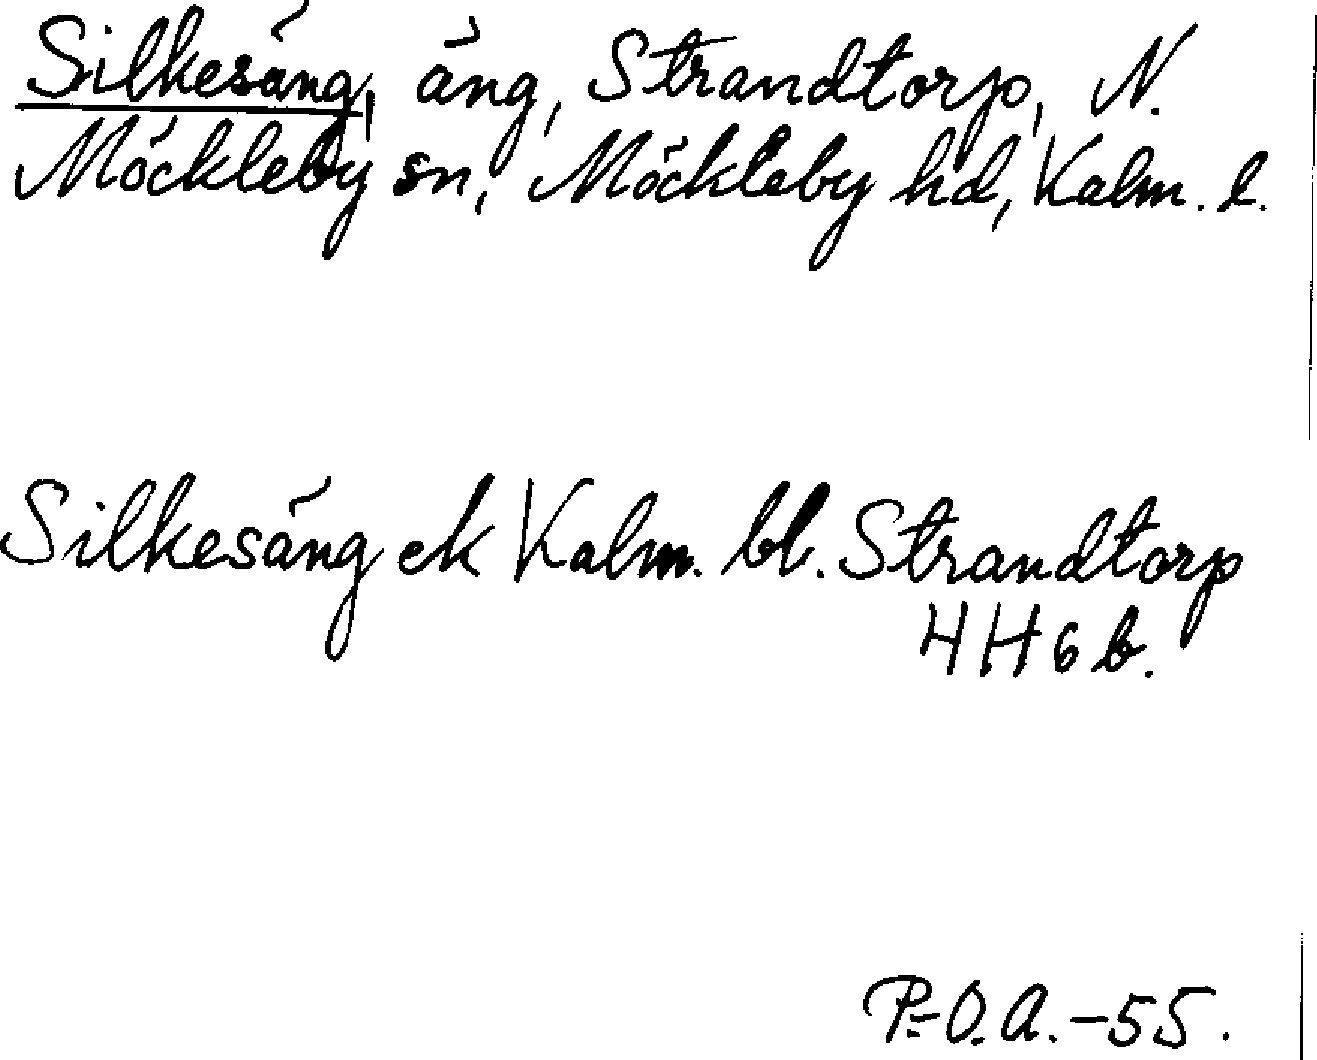 Silkesäng, äng, Strandtorp, N.
Möckleby sn, Möckleby hd, Kalm. l.
Silkesäng ek Kalm. bl. Strandtorp
4H6b.
P.-O.A.-55.